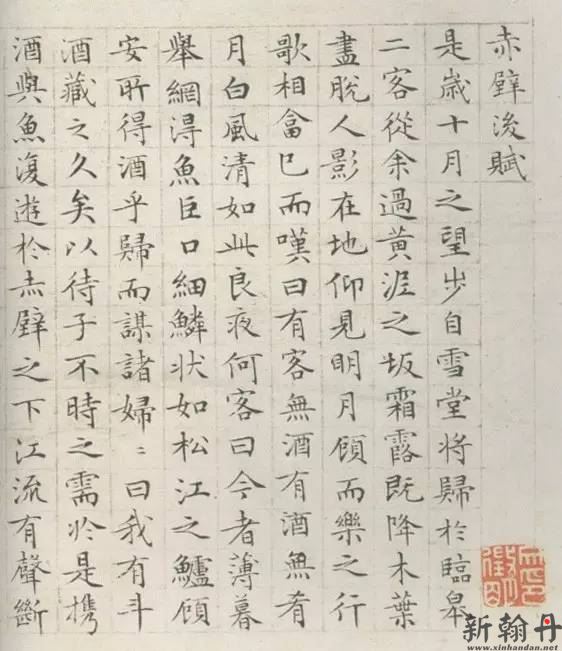 赤壁後賦
是歲十月之望步自雪堂將歸於臨皋
二客從余過黃泥之坂霜露既降木葉
盡脫人影在地仰見明月顧而樂之行
歌相畣已而嘆曰有客無酒有酒無肴
月白風清如此良夜何客曰今者薄暮
舉網得魚巨口細鱗狀如松江之鱸顧
安所得酒乎歸而謀諸婦〻曰我有斗
酒藏之久矣以待子不時之需於是攜
酒與魚復遊於赤壁之下江流有聲斷
新翰丹
www.xinhandan.net